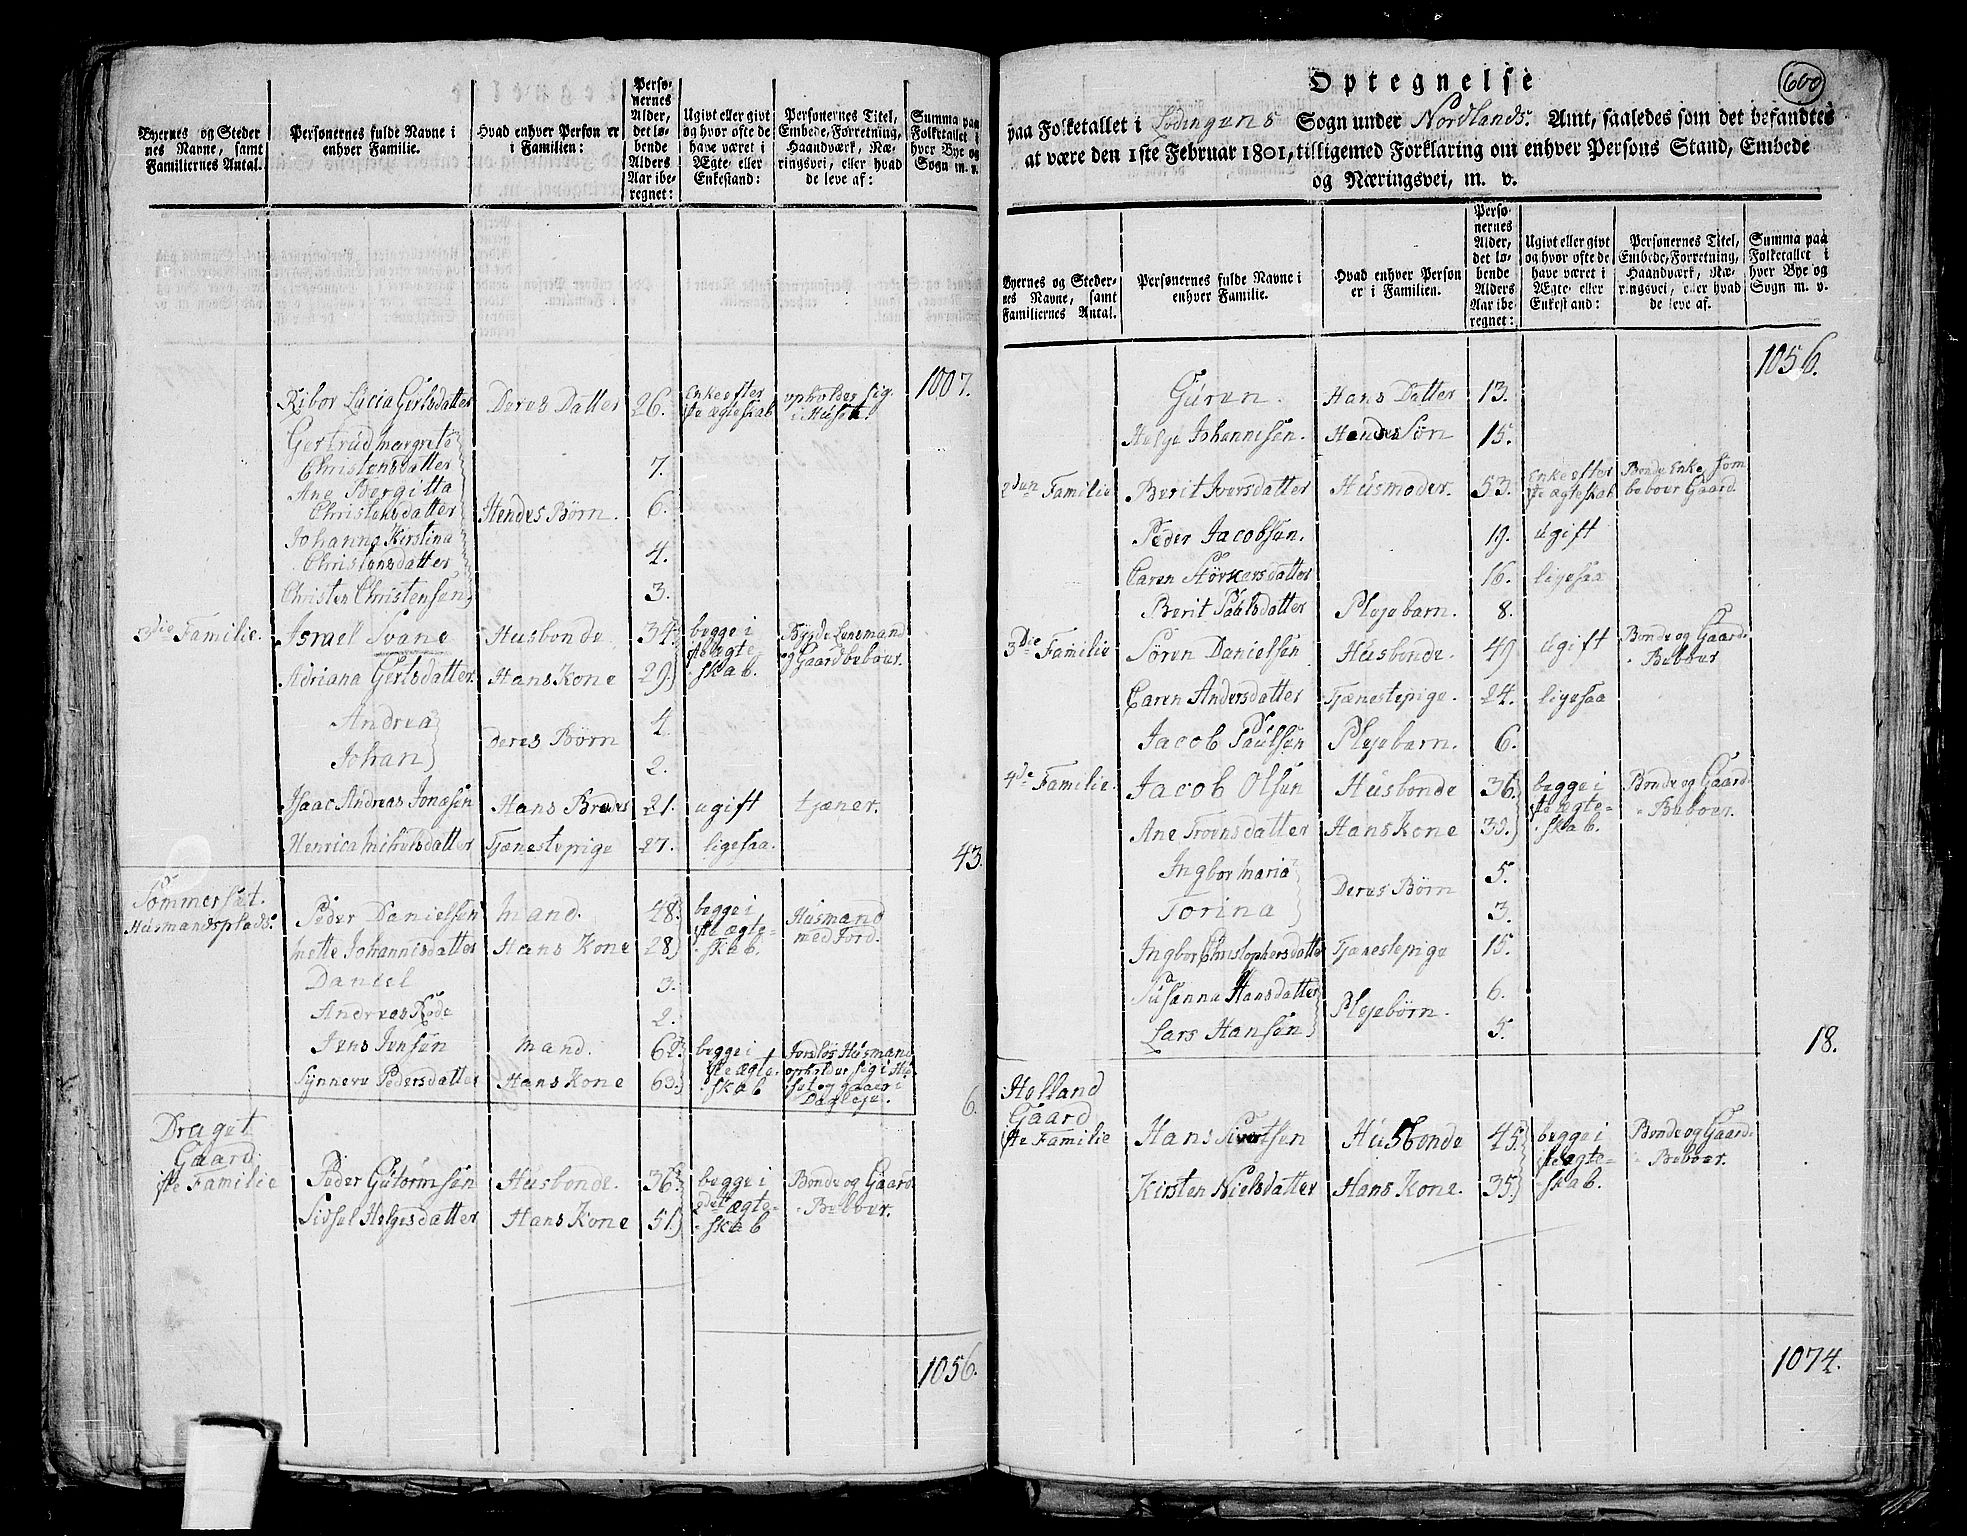 Byernes og Steder
nes Navne, samt
Familiernes Antal.
Personernes fulde Navne i
enhver Familie.
Hvad enhver Person er
i Familien:
Perso-
nernes
Alder,
det lø-
bende
Alders
Aar ibe-
regnet:
Ugivt eller givt
og hvor ofte de
have været i
Ægte- eller
Enkestand:
Personernes Titel,
Embede, Forretning,
Haandværk, Næ-
ringsvei, eller hvad
de leve af:
Summa paa
Folketallet i
hver Bye og
Sogn m. v.
1007.
Ribor Lucia Gertsdatter Deres Datter 26. Enke efter opholdes sig.
1ste ægteskab i Huset.
Gertrud Margrete
Christensdatter 7.
Ane Bergitta
Christensdatter Hendes Børn. 6.
Johanna Kirstina
Christensdatter 4.
Christen Christensen 3.
3die Familie. Israel Svane Husbonde 34 begge i Bygde Lensmand
Adriana Gertsdatter. Hans Kone 29 1ste ægte- og Gaardbeboer.
skab.
Andrea 4.
Deres Børn
Johan 2.
Isaac Andreas Jonasen Hans Broder 21. ugift tjener.
Henrica Michelsdatter Tjænestepige 27. ligesaa.
43.
Sommerset.
Husmandsplads. Peder Danielsen Mand. 48 begge i Husmand
Mette Johannisdatter Hans Kone 28 1ste ægte- med Jord.
skab.
Daniel 3.
Andreas Røde 2.
Jens Jensen Mand. 62 begge i Jordløs Husmand
Synneru Pedersdatter Hans Kone 63. 1ste ægte- opholder sig i Hu
skab set og gaaer i
Dagleje.
6.
Draget
Gaard.
1ste Familie Peder Gutormsen Husbonde. 36 begge i Bonde og Gaard
Sidsel Helgesdatter Hans Kone 51 2det ægte- Beboer.
skab
1056.
600
Optegnelse
paa Folketallet i Lodingens Sogn under Nordlands Amt, saaledes som det befandtes
at være den 1ste Februar 1801, tilligemed Forklaring om enhver Persons Stand, Embede
og Næringsvei, m. v.
Byernes og Steder-
nes Navne, samt
Familiernes Antal.
Personernes fulde Navne i
enhver Familie.
Hvad enhver Person
er i Familien.
Perso-
nernes
Alder,
det lø-
bende
Alders
Aar ibe-
regnet:
Ugivt eller givt
og hvor ofte de
have været i
Ægte- eller
Enkestand:
Personernes Titel,
Embede, Forretning,
Haandværk, Næ-
ringsvei, eller hvad
de leve af.
Summa paa
Folketallet i
hver Bye og
Sogn m. v.
1056.
Guren. Hans Datter 13.
Helge Johannesen. Hendes Søn 15.
2den Familie Berit Iversdatter Husmoder. 53. Enke efter Bonde Enke som
1ste ægteskab beboer Gaard.
Peder Jacobsen. 19. ugift
Caren Størkersdatter 16. ligesaa
Berit Paulsdatter Plejebarn. 8.
3die Familie Søren Danielsen Husbonde. 49 ugift Bonde og Gaard-
Beboer
Caren Andersdatter Tjænestepige. 24. ligesaa
Jacob Paulsen Plejebarn. 6.
4de Familie. Jacob Olsen Husbonde 36. begge i Bonde og Gaard-
Ane Troensdatter Hans Kone 33. 1ste ægte- Beboer.
skab.
Ingbor Maria 5.
Deres Børn
Torina 3.
Ingbor Christophersdatter Tjænestepige 15.
Susanna Hansdatter 6.
Plejebørn.
Lars Hansen 5.
18.
Helland
Gaard
1ste Familie Hans Sivertsen Husbonde 45. begge i Bonde og Gaard-
1ste ægte- Beboer.
Kirsten Nielsdatter Hans Kone. 35. skab.
1074.